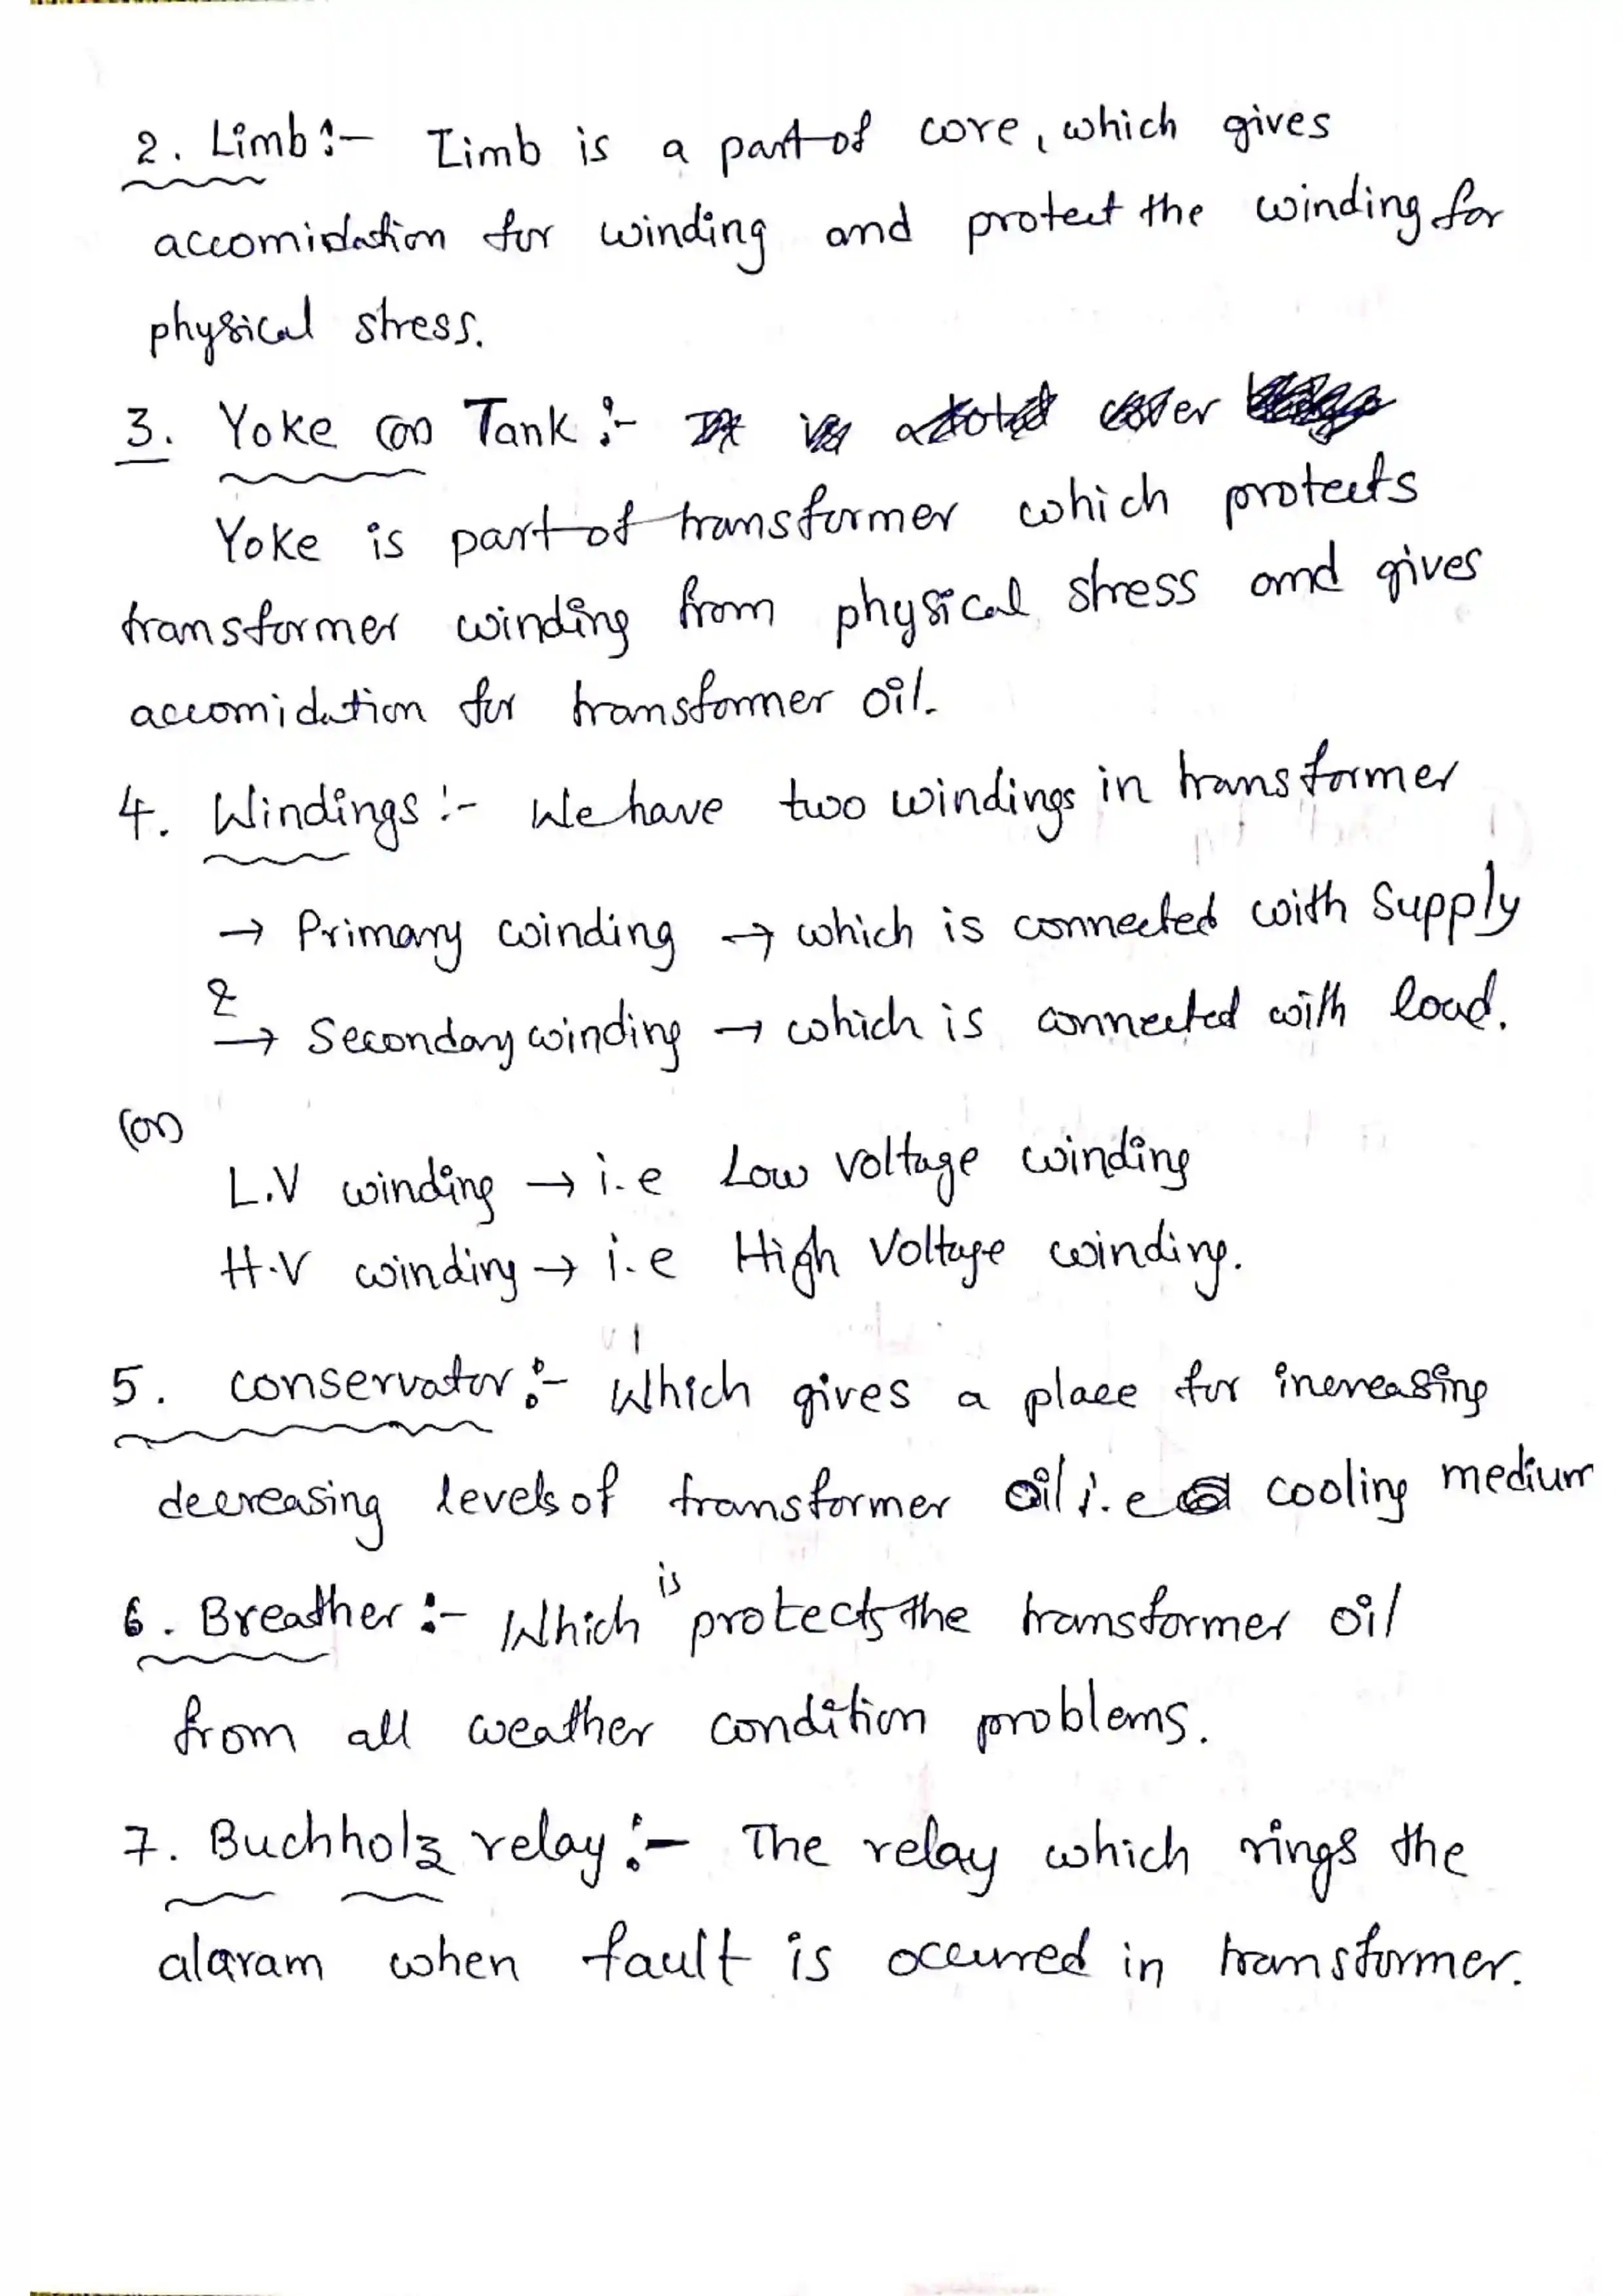 2. Limb:- Limb is a part of core, which gives
accomidation for winding and protect the winding for
physical stress.
3. Yoke (or) Tank :- It is a total cover
Yoke is part of transformer which protects
transformer winding from physical stress and gives
accomidation for transformer oil.
4. Windings :- We have two windings in transformer
→ Primary winding → which is connected with Supply
&
→ Secondary winding → which is connected with load.
(or)
L.V winding → i.e Low voltage winding
H.V winding → i.e High Voltage winding.
5. conservator :- Which gives a place for increasing
decreasing levels of transformer oil i.e cooling medium
6. Breather :- Which is protects the transformer oil
from all weather condition problems.
7. Buchholz relay :- The relay which rings the
alaram when fault is occurred in transformer.